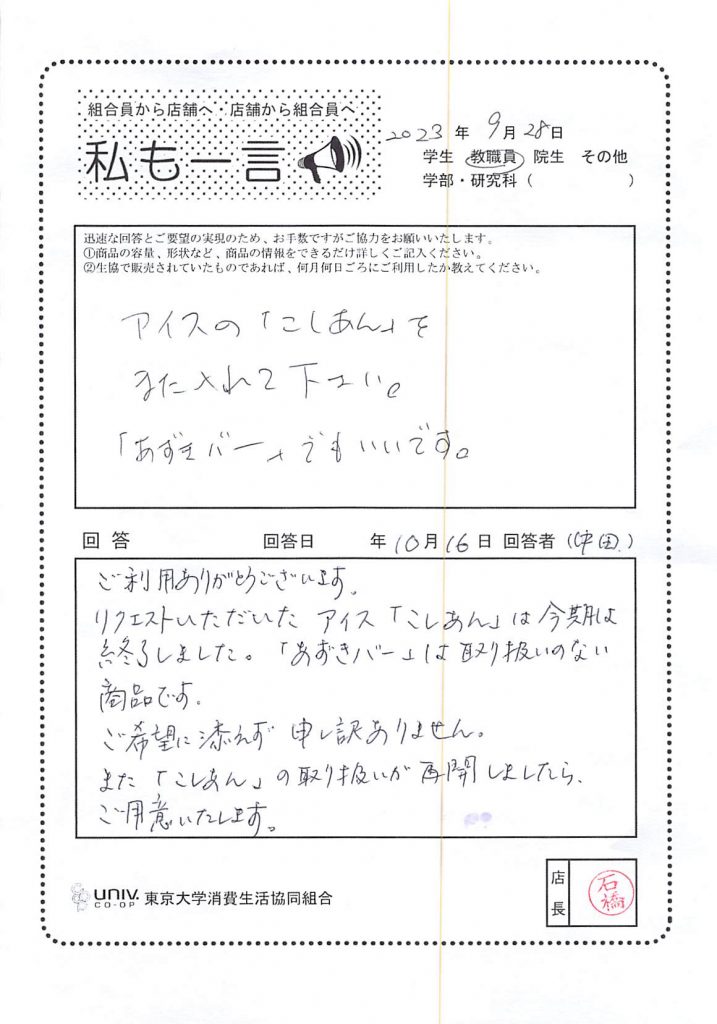 組合員から店舗へ・店舗から組合員へ
私も一言
2023年9月28日
学生 教職員 院生 その他
学部・研究科( )
迅速な回答とご要望の実現のため、お手数ですがご協力をお願いいたします。
①商品の容量、形状など、商品の情報をできるだけ詳しくご記入ください。
②生協で販売されていたものであれば、何月何日ごろにご利用したか教えてください。
アイスの「こしあん」を
また入れて下さい。
「あずきバー」でもいいです。
回答 回答日 年10月16日 回答者(中田)
ご利用ありがとうございます。
リクエストいただいた アイス「こしあん」は今期は
終了しました。「あずきバー」は取り扱いのない
商品です。
ご希望に添えず 申し訳ありません。
また「こしあん」の取り扱いが再開しましたら、
ご用意いたします。
UNIV. CO-OP 東京大学消費生活協同組合
店長 石橋